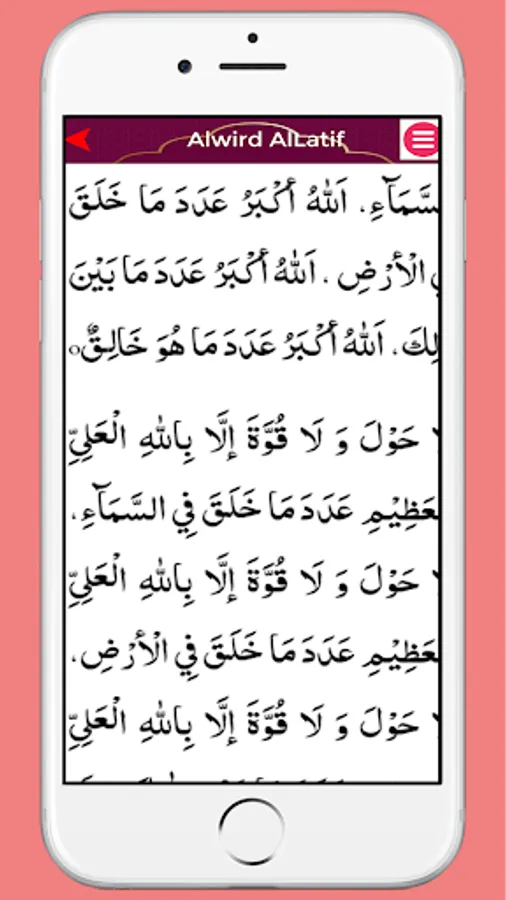 Alwird AlLatif
السَّمَآءِ. اَللهُ أَكْبَرُ عَدَدَ مَا خَلَقَ
الْأَرْضِ. اَللهُ أَكْبَرُ عَدَدَ مَا بَيْنَ
لِكَ. اَللهُ أَكْبَرُ عَدَدَ مَا هُوَ خَالِقٌ
حَوْلَ وَ لَا قُوَّةَ إِلَّا بِاللهِ الْعَلِيِّ
عَظِيْمِ عَدَدَ مَا خَلَقَ فِي السَّمَآءِ.
حَوْلَ وَ لَا قُوَّةَ إِلَّا بِاللهِ الْعَلِيِّ
عَظِيْمِ عَدَدَ مَا خَلَقَ فِي الْأَرْضِ.
حَوْلَ وَ لَا قُوَّةَ إِلَّا بِاللهِ الْعَلِيِّ